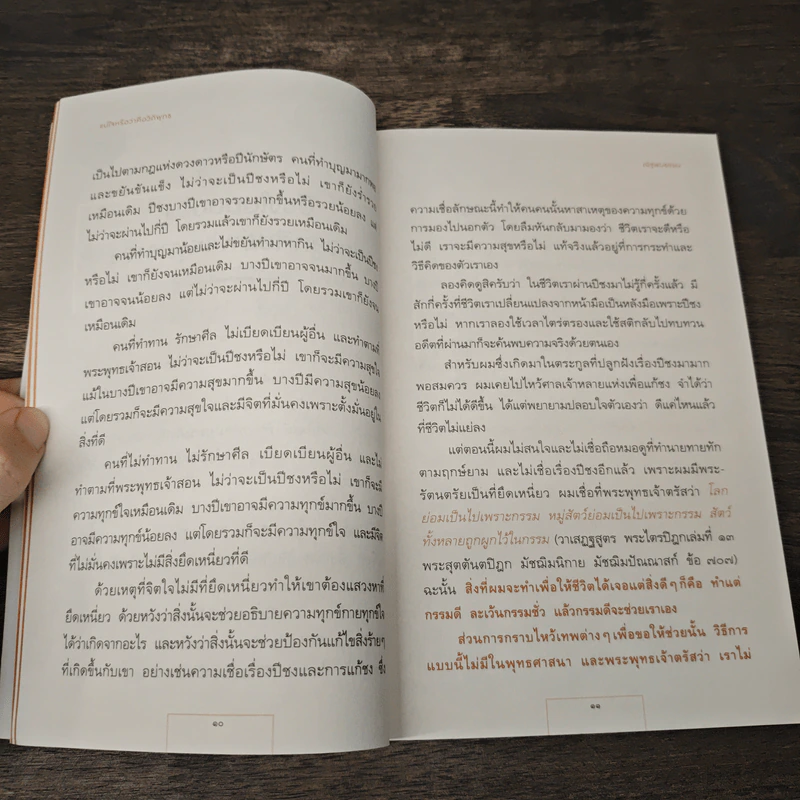 เป็นไปตามกฎแห่งดวงดาวหรือปีนักษัตร คนที่ทำบุญมามาก
และขยันขันแข็ง ไม่ว่าจะเป็นปีชงหรือไม่ เขาก็ยังร่ำรวย
เหมือนเดิม ปีชงบางปีเขาอาจรวยมากขึ้นหรือรวยน้อยลง แต่
ไม่ว่าจะผ่านไปกี่ปี โดยรวมแล้วเขาก็ยังรวยเหมือนเดิม
คนที่ทำบุญมาน้อยและไม่ขยันทำมาหากิน ไม่ว่าจะเป็นปีชง
หรือไม่ เขาก็ยังจนเหมือนเดิม บางปีเขาอาจจนมากขึ้น บางปี
เขาอาจจนน้อยลง แต่ไม่ว่าจะผ่านไปกี่ปี โดยรวมเขาก็ยังจน
เหมือนเดิม
คนที่ทำทาน รักษาศีล ไม่เบียดเบียนผู้อื่น และทำตามที่
พระพุทธเจ้าสอน ไม่ว่าจะเป็นปีชงหรือไม่ เขาก็จะมีความสุขใจ
แม้ในบางปีเขาอาจมีความสุขมากขึ้น บางปีมีความสุขน้อยลง
แต่โดยรวมก็จะมีความสุขใจและมีจิตที่มั่นคงเพราะตั้งมั่นอยู่ใน
สิ่งที่ดี
คนที่ไม่ทำทาน ไม่รักษาศีล เบียดเบียนผู้อื่น และไม่
ทำตามที่พระพุทธเจ้าสอน ไม่ว่าจะเป็นปีชงหรือไม่ เขาก็จะมี
ความทุกข์ใจเหมือนเดิม บางปีเขาอาจมีความทุกข์มากขึ้น บางปี
อาจมีความทุกข์น้อยลง แต่โดยรวมก็จะมีความทุกข์ใจ และมีจิต
ที่ไม่มั่นคงเพราะไม่มีสิ่งยึดเหนี่ยวที่ดี
ด้วยเหตุที่จิตใจไม่มีที่ยึดเหนี่ยวทำให้เขาต้องแสวงหาที่
ยึดเหนี่ยว ด้วยหวังว่าสิ่งนั้นจะช่วยอธิบายความทุกข์กายทุกข์ใจ
ได้ว่าเกิดจากอะไร และหวังว่าสิ่งนั้นจะช่วยป้องกันแก้ไขสิ่งร้ายๆ
ที่เกิดขึ้นกับเขา อย่างเช่นความเชื่อเรื่องปีชงและการแก้ชง ซึ่ง
๑๐
ความเชื่อลักษณะนี้ทำให้คนคนนั้นหาสาเหตุของความทุกข์ด้วย
การมองไปนอกตัว โดยลืมหันกลับมามองว่า ชีวิตเราจะดีหรือ
ไม่ดี เราจะมีความสุขหรือไม่ แท้จริงแล้วอยู่ที่การกระทำและ
วิธีคิดของตัวเราเอง
ลองคิดดูสิครับว่า ในชีวิตเราผ่านปีชงมาไม่รู้กี่ครั้งแล้ว มี
สักกี่ครั้งที่ชีวิตเราเปลี่ยนแปลงจากหน้ามือเป็นหลังมือเพราะปีชง
หรือไม่ หากเราลองใช้เวลาไตร่ตรองและใช้สติกลับไปทบทวน
อดีตที่ผ่านมาก็จะค้นพบความจริงด้วยตนเอง
สำหรับผมซึ่งเกิดมาในตระกูลที่ปลูกฝังเรื่องปีชงมามาก
พอสมควร ผมเคยไปไหว้ศาลเจ้าหลายแห่งเพื่อแก้ชง จำได้ว่า
ชีวิตก็ไม่ได้ดีขึ้น ได้แต่พยายามปลอบใจตัวเองว่า ดีแค่ไหนแล้ว
ที่ชีวิตไม่แย่ลง
แต่ตอนนี้ผมไม่สนใจและไม่เชื่อถือหมอดูที่ทำนายทายทัก
ตามฤกษ์ยาม และไม่เชื่อเรื่องปีชงอีกแล้ว เพราะผมมีพระ-
รัตนตรัยเป็นที่ยึดเหนี่ยว ผมเชื่อที่พระพุทธเจ้าตรัสว่า โลก
ย่อมเป็นไปเพราะกรรม หมู่สัตว์ย่อมเป็นไปเพราะกรรม สัตว์
ทั้งหลายถูกผูกไว้ในกรรม (วาเสฏฐสูตร พระไตรปิฎกเล่มที่ ๑๓
พระสุตตันตปิฎก มัชฌิมนิกาย มัชฌิมปัณณาสก์ ข้อ ๗๐๗)
ฉะนั้น สิ่งที่ผมจะทำเพื่อให้ชีวิตได้เจอแต่สิ่งดีๆ ก็คือ ทำแต่
กรรมดี ละเว้นกรรมชั่ว แล้วกรรมดีจะช่วยเราเอง
ส่วนการกราบไหว้เทพต่างๆ เพื่อขอให้ช่วยนั้น วิธีการ
แบบนี้ไม่มีในพุทธศาสนา และพระพุทธเจ้าตรัสว่า เราไม่
๑๑